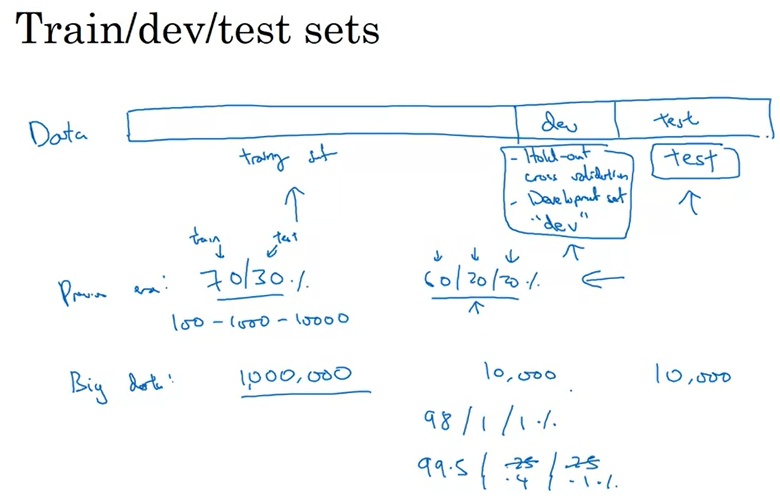 Train/dev/test sets
Data
dev
test
training set
- Hold-out
cross validation
- Development set
"dev"
test
train
test
Previous era: 70/30 %
60/20/20 %
100 - 1000 - 10000
Big data: 1,000,000
10,000
10,000
98 / 1 / 1 %
99.5 / 25 / 25
.4 .1 %